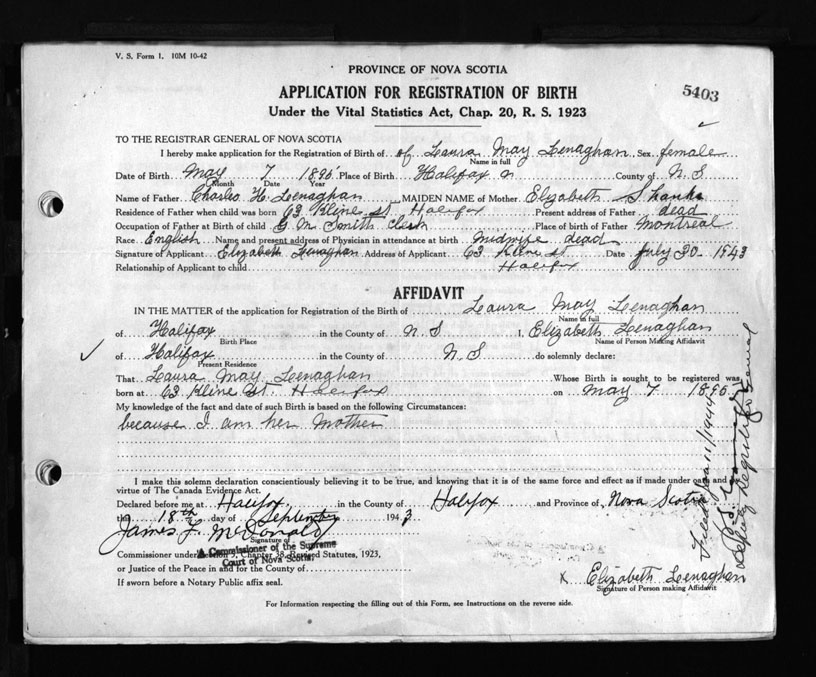 V. S. Form 1. 10M 10-42
PROVINCE OF NOVA SCOTIA
5403
APPLICATION FOR REGISTRATION OF BIRTH
Under the Vital Statistics Act, Chap. 20, R. S. 1923
TO THE REGISTRAR GENERAL OF NOVA SCOTIA
I hereby make application for the Registration of Birth of of Laura May Lenaghan Sex female
Name in full
Date of Birth May 7 1890 Place of Birth Halifax County of N. S
Month Date Year
Name of Father Charles H. Lenaghan MAIDEN NAME of Mother Elizabeth Shanks
Residence of Father when child was born 63 Kline st Halifax Present address of Father dead
Occupation of Father at Birth of child G. M. Smith Clerk Place of birth of Father Montreal
Race English Name and present address of Physician in attendance at birth Midwife dead
Signature of Applicant Elizabeth Lenaghan Address of Applicant 63 Kline st Date July 20 1943
Relationship of Applicant to child Halifax
AFFIDAVIT
IN THE MATTER of the application for Registration of the Birth of Laura May Lenaghan
Name in full
of Halifax in the County of N. S I, Elizabeth Lenaghan
Birth Place Name of Person Making Affidavit
of Halifax in the County of N. S do solemnly declare:
Present Residence
That Laura May Lenaghan Whose Birth is sought to be registered was
born at 63 Kline St. Halifax on May 7 1890
My knowledge of the fact and date of such Birth is based on the following Circumstances:
because I am her Mother
I make this solemn declaration conscientiously believing it to be true, and knowing that it is of the same force and effect as if made under oath and by
virtue of The Canada Evidence Act.
Declared before me at Halifax in the County of Halifax and Province of Nova Scotia
the 18th day of September 1943
James F. McDonald
Signature of
A Commissioner of the Supreme
Court of Nova Scotia
Commissioner under Section 3, Chapter 38, Revised Statutes, 1923,
or Justice of the Peace in and for the County of
If sworn before a Notary Public affix seal.
x Elizabeth Lenaghan
Signature of Person making Affidavit
For Information respecting the filling out of this Form, see Instructions on the reverse side.
Filed Jan 11/1944
Deputy Registrar General